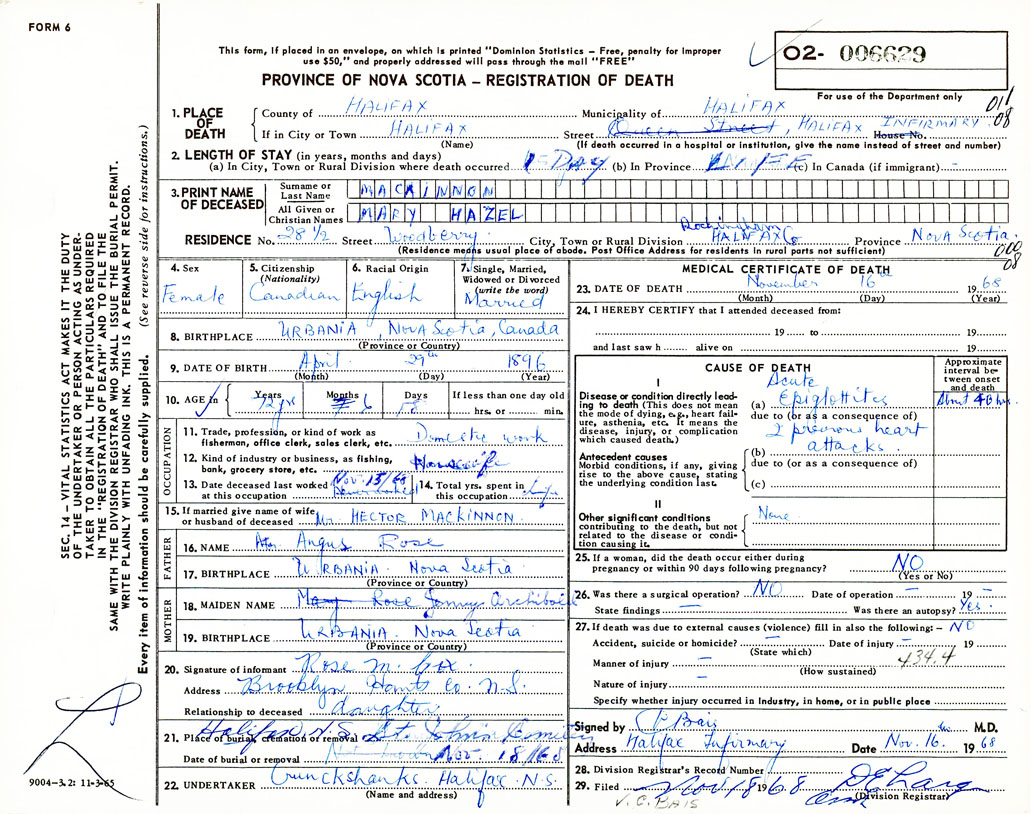 FORM 6
This form, if placed in an envelope, on which is printed "Dominion Statistics – Free, penalty for improper
use $50," and properly addressed will pass through the mail "FREE"
O2- 006629
PROVINCE OF NOVA SCOTIA – REGISTRATION OF DEATH
For use of the Department only
1. PLACE OF DEATH
County of HALIFAX Municipality of HALIFAX 011
If in City or Town HALIFAX Street Queen Street, HALIFAX INFIRMARY House No. 08
(Name) (If death occurred in a hospital or institution, give the name instead of street and number)
2. LENGTH OF STAY (in years, months and days)
(a) In City, Town or Rural Division where death occurred 1 DAY (b) In Province LIFE (c) In Canada (if immigrant) –
3. PRINT NAME OF DECEASED
Surname or Last Name MACKINNON
All Given or Christian Names MARY HAZEL
Rockingham
RESIDENCE No. 28 1/2 Street Woodberry City, Town or Rural Division HALIFAX Co Province NOVA SCOTIA
(Residence means usual place of abode. Post Office Address for residents in rural parts not sufficient) 000
08
SEC. 14 – VITAL STATISTICS ACT MAKES IT THE DUTY
OF THE UNDERTAKER OR PERSON ACTING AS UNDER-
TAKER TO OBTAIN ALL THE PARTICULARS REQUIRED
IN THE "REGISTRATION OF DEATH" AND TO FILE THE
SAME WITH THE DIVISION REGISTRAR WHO SHALL ISSUE THE BURIAL PERMIT.
WRITE PLAINLY WITH UNFADING INK. THIS IS A PERMANENT RECORD.
Every item of information should be carefully supplied. (See reverse side for instructions.)
4. Sex
Female
5. Citizenship
(Nationality)
Canadian
6. Racial Origin
English
7. Single, Married,
Widowed or Divorced
(write the word)
Married
8. BIRTHPLACE URBANIA, NOVA Scotia, Canada
(Province or Country)
9. DATE OF BIRTH April 29th 1896
(Month) (Day) (Year)
10. AGE in
Years Months Days If less than one day old
72 yrs 6 18 hrs. or min.
OCCUPATION
11. Trade, profession, or kind of work as
fisherman, office clerk, sales clerk, etc. Domestic work
12. Kind of industry or business, as fishing,
bank, grocery store, etc. Housewife
13. Date deceased last worked
at this occupation Nov. 15/68
14. Total yrs. spent in
this occupation Life
15. If married give name of wife
or husband of deceased Mr. HECTOR MACKINNON.
FATHER
16. NAME Angus Rose
17. BIRTHPLACE URBANIA. Nova Scotia
(Province or Country)
MOTHER
18. MAIDEN NAME Mary Rose
19. BIRTHPLACE URBANIA. Nova Scotia
(Province or Country)
20. Signature of informant Rose M. Cox
Address Brooklyn Hants Co. N.S.
Relationship to deceased daughter
21. Place of burial, cremation or removal Halifax N.S. St. John Cemetery
Date of burial or removal Nov. 18/68
22. UNDERTAKER Cruickshanks. Halifax N.S.
(Name and address)
9004–3.2: 11-3-65
MEDICAL CERTIFICATE OF DEATH
23. DATE OF DEATH November 16th 1968
(Month) (Day) (Year)
24. I HEREBY CERTIFY that I attended deceased from:
19 to 19
and last saw h alive on 19
CAUSE OF DEATH
Approximate
interval be-
tween onset
and death
I
Disease or condition directly lead-
ing to death (This does not mean
the mode of dying, e.g., heart fail-
ure, asthenia, etc. It means the
disease, injury, or complication
which caused death.)
Acute
(a) Epiglottitis About 48 hrs.
due to (or as a consequence of)
2 previous heart
attacks.
Antecedent causes
Morbid conditions, if any, giving
rise to the above cause, stating
the underlying condition last.
(b)
due to (or as a consequence of)
(c)
II
Other significant conditions
contributing to the death, but not
related to the disease or condi-
tion causing it.
None
25. If a woman, did the death occur either during
pregnancy or within 90 days following pregnancy? NO
(Yes or No)
26. Was there a surgical operation? NO Date of operation – 19 –
State findings – Was there an autopsy? Yes.
27. If death was due to external causes (violence) fill in also the following: – NO
Accident, suicide or homicide? – Date of injury – 19
(State which)
434.4
Manner of injury –
(How sustained)
Nature of injury –
Specify whether injury occurred in Industry, in home, or in public place
Signed by C Bais M.D.
Address Halifax Infirmary Date Nov. 16. 1968
28. Division Registrar's Record Number
29. Filed Nov 18 1968
(Division Registrar)
V. C. BAIS